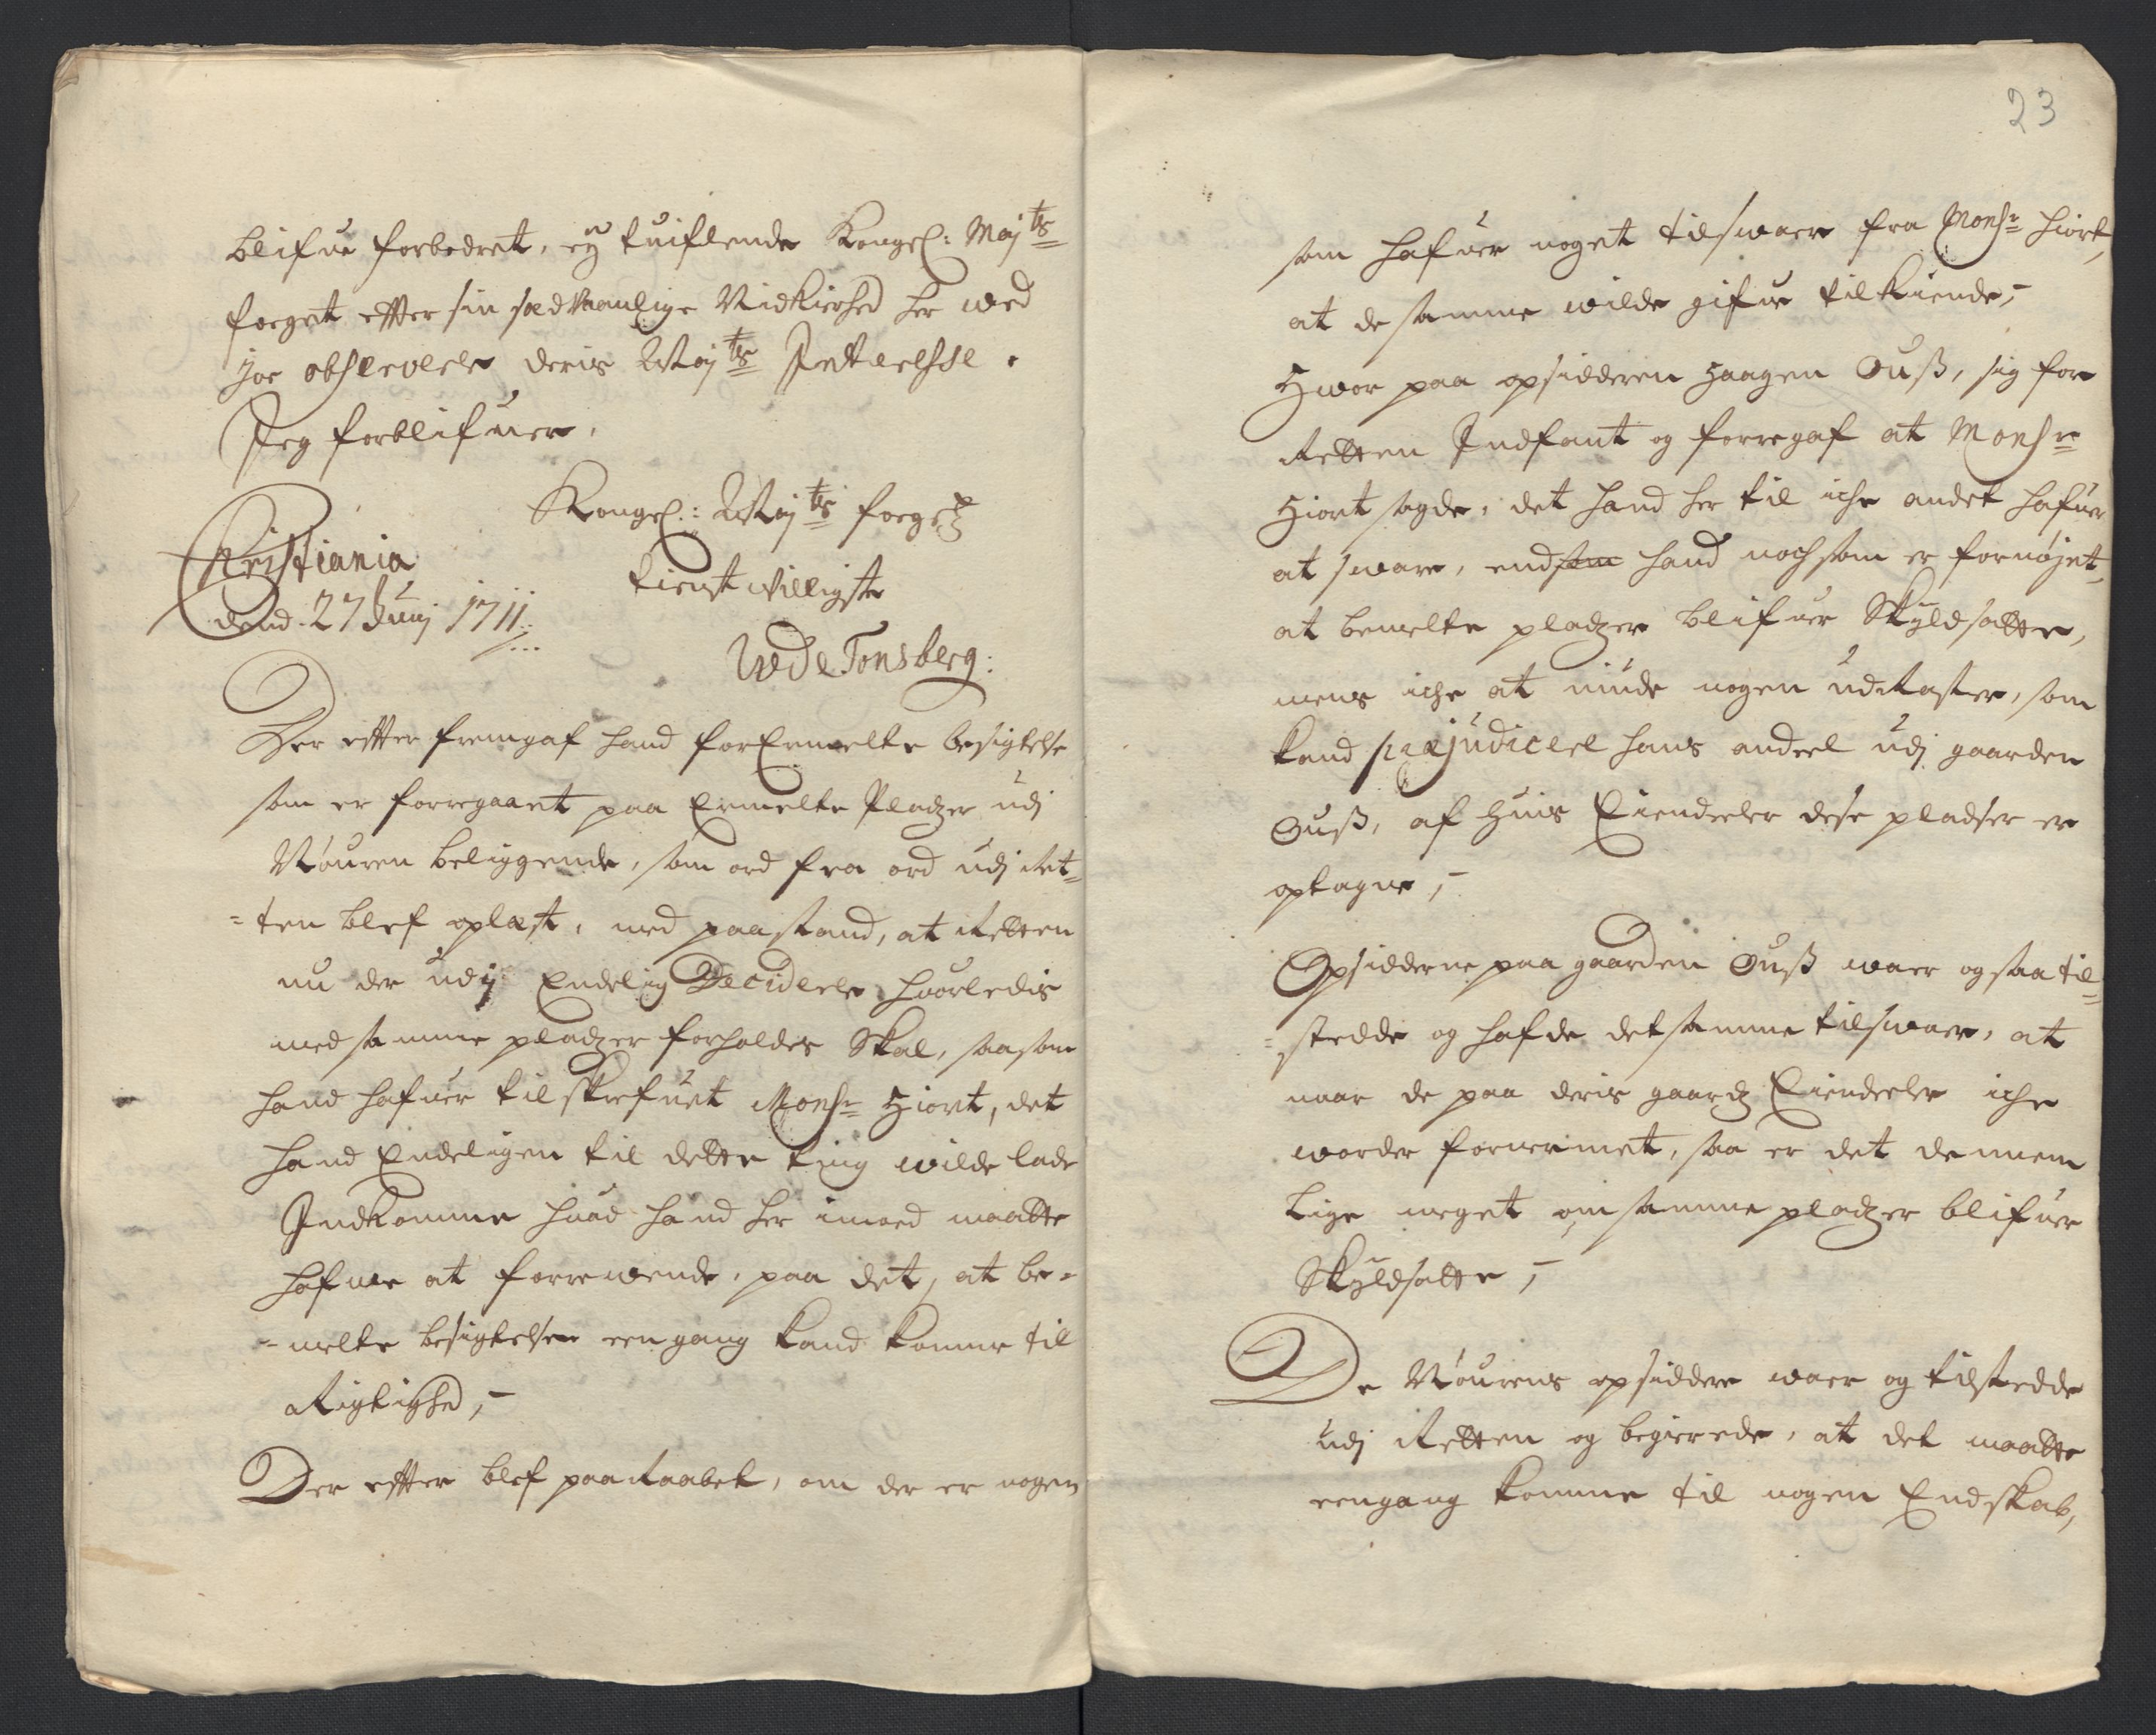 blifue forbedret, ey tuiflende Kongel: Maytz
foeget effter sin sædvaanlige Nidkierhed her ved
jo observerer deris Maytz Interesse.
Jeg forblifuer,
Kongel: Maytz foegetz
Christiania
tienstvilligste
dend 27 Junj 1711
WdeTonsberg:
Der effter fremgaf hand forErmelte besigtelse
som er forregaaet paa Ermelte Pladzer udj
Mouren beliggende, som ord fra ord udj Ret-
-ten blef oplæst, med paastand, at Retten
nu der udj Endelig Deciderer huorledis
med samme pladzer forholdes Skal, saasom
hand hafuer tilskrefuet Monsr Hiort, det
hand Endeligen til dette ting wilde lade
Indkomme huad hand her imod maatte
hafue at forrewende, paa det, at be-
-melte besigtelser eengang kand komme til
Rigtighed,-
Der effter blef paaraabet, om der er nogen
23
som hafuer noget tilswaer fra Monsr Hiort,
at de samme wilde gifue tilkiende,-
Hwor paa opsidderen Haagen Ouß, sig for
Retten Indfant og forregaf at Monsr
Hiort sagde, det hand her til iche andet hafuer
at sware, end som hand noch som er fornøjet,
at bemelte pladzer blifuer Skyldsatte,
mens iche at niude nogen udraster, som
kand præjudicere hans andeel udj gaarden
Ouß, af huis Eiendeeler dese pladser er
optagne,-
Opsidderne paa gaarden Ouß waer ogsaa til-
-stedde og hafde det samme tilswaer, at
naar de paa deris gaardz Eiendeeler iche
worder fornermet, saa er det dennem
lige meget om samme pladzer blifuer
Skyldsatte,-
De Mourens opsiddere waer og tilstedde
udj Retten og begierede, at det maatte
eengang komme til nogen Endskab,